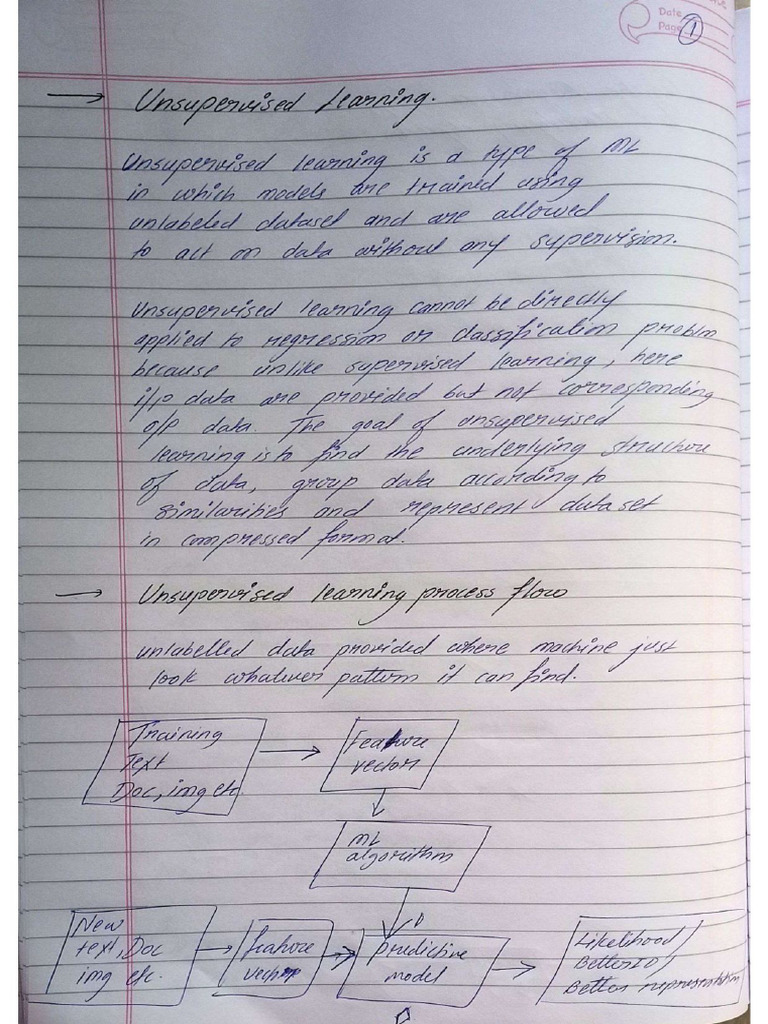 Date
Page 1
→ Unsupervised Learning.
Unsupervised learning is a type of ML
in which models are trained using
unlabeled dataset and are allowed
to act on data without any supervision.
Unsupervised learning cannot be directly
applied to regression or classification problm
because unlike supervised learning, here
i/p data are provided but not corresponding
o/p data. The goal of unsupervised
learning is to find the underlying structure
of data, group data according to
similarities and represent dataset
in compressed format.
→ Unsupervised learning process flow
unlabelled data provided where machine just
look whatever pattern it can find.
Training
Text
Doc, img etc.
Feature
vectors
ML
algorithm
New
text, Doc
img etc.
feature
vector
predictive
model
Likelihood/
Better ID/
Better representation